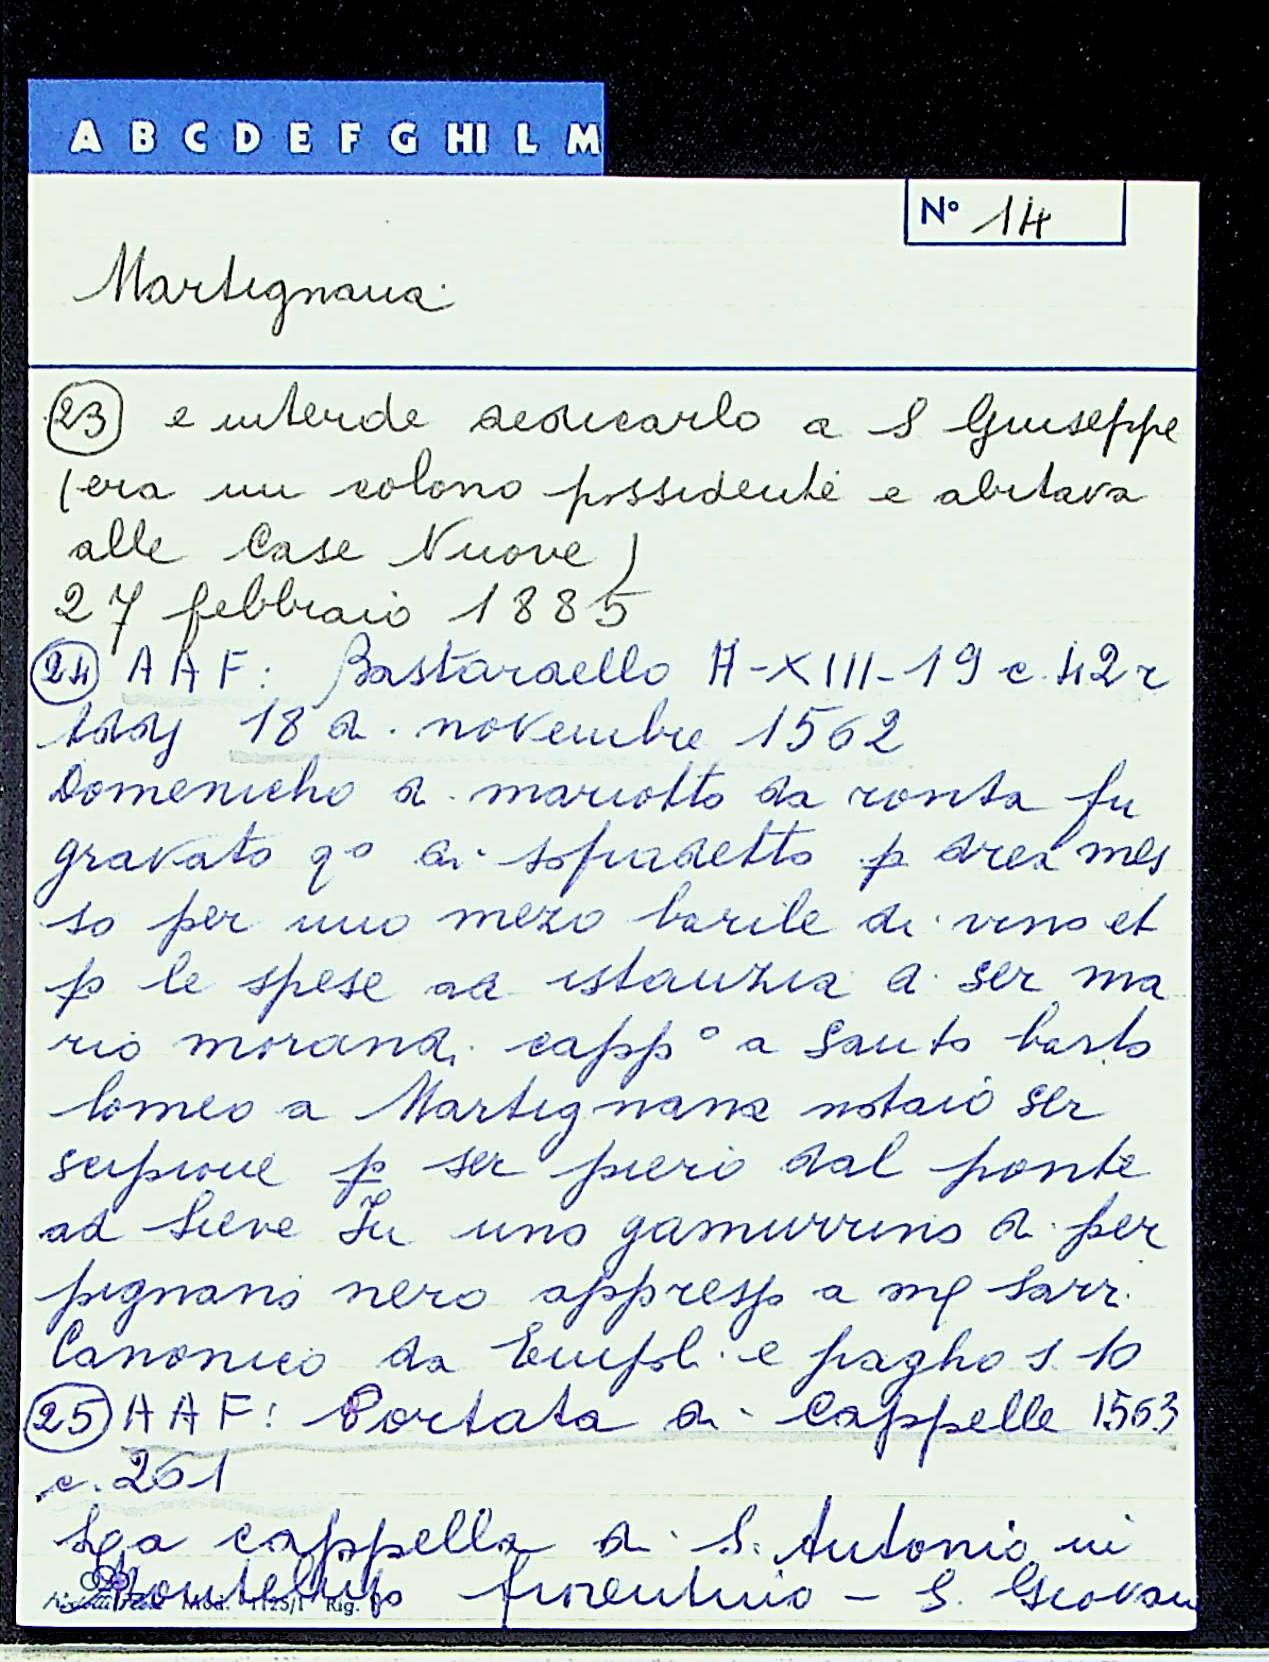 A B C D E F G HI L M
N° 14
Martignana
23 e intende dedicarlo a S Giuseppe
(era un colono possidente e abitava
alle Case Nuove)
27 febbraio 1885
24 AAF: Bastardello A-XIII-19 c. 42 r
Addj 18 di novembre 1562
Domenicho di mariotto da ronta fu
gravato q° di sopradetto p drea mes
so per uno mezo barile di vino et
p le spese ad istanzia di ser ma
rio morandi capp° a Santo barto
lomeo a Martignana notaio ser
scipione p ser piero dal ponte
ad Sieve In uno gamurrino di per
pignano nero appresso a
Canonico da Empoli e pagho s. 10
25 AAF: Portata di Cappelle 1563
c. 261
cappella di S. Antonio in
Montelupo fiorentino - S. Giovan
Mod. Rig.